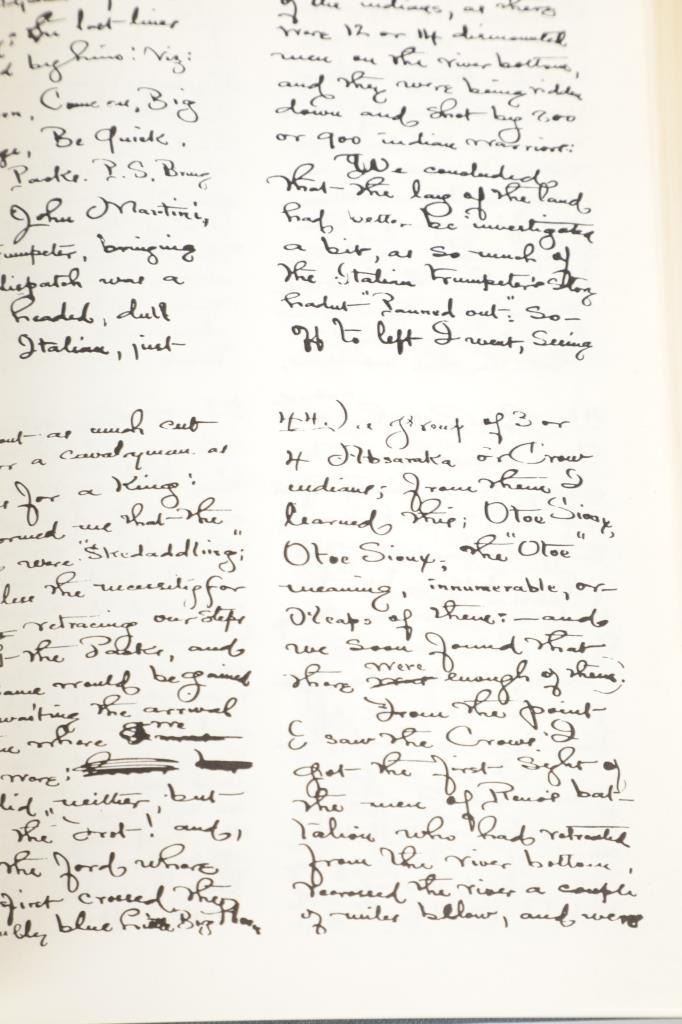 the last lines
by him: Viz:
on, Come on, Big
ge, Be Quick,
Packs. P.S. Bring
John Martini,
rumpeter, bringing
dispatch was a
headed, dull
Italian, just
of the indians, as there
were 12 or 14 dismounted
men on the river bottom,
and they were being ridden
down and shot by 800
or 900 indian warriors:
We concluded
that the lay of the land
had better be investigated
a bit, as so much of
the Italian trumpeter's story
hadnt "Panned out". So—
off to left I went, seeing
out as much cut
or a cavalryman as
s for a King:
ormed me that the
were "Skedaddling";
less the necessity for
retracing our steps
the Packs, and
same would be gained
waiting the arrival
where we
were:
did, neither, but
the trot! and,
the ford where
first crossed, the
blue Big Horn
44.) a group of 3 or
4 Absaraka or Crow
indians; from them I
learned this; Otoe Sioux,
Otoe Sioux, the "Otoe"
meaning, innumerable, or—
Heaps of them:—and
we soon found that
there were enough of them).
From the point
I saw the Crows I
got the first sight of
the men of Reno's bat—
talion who had retreated
from the river bottom,
recrossed the river a couple
of miles below, and were